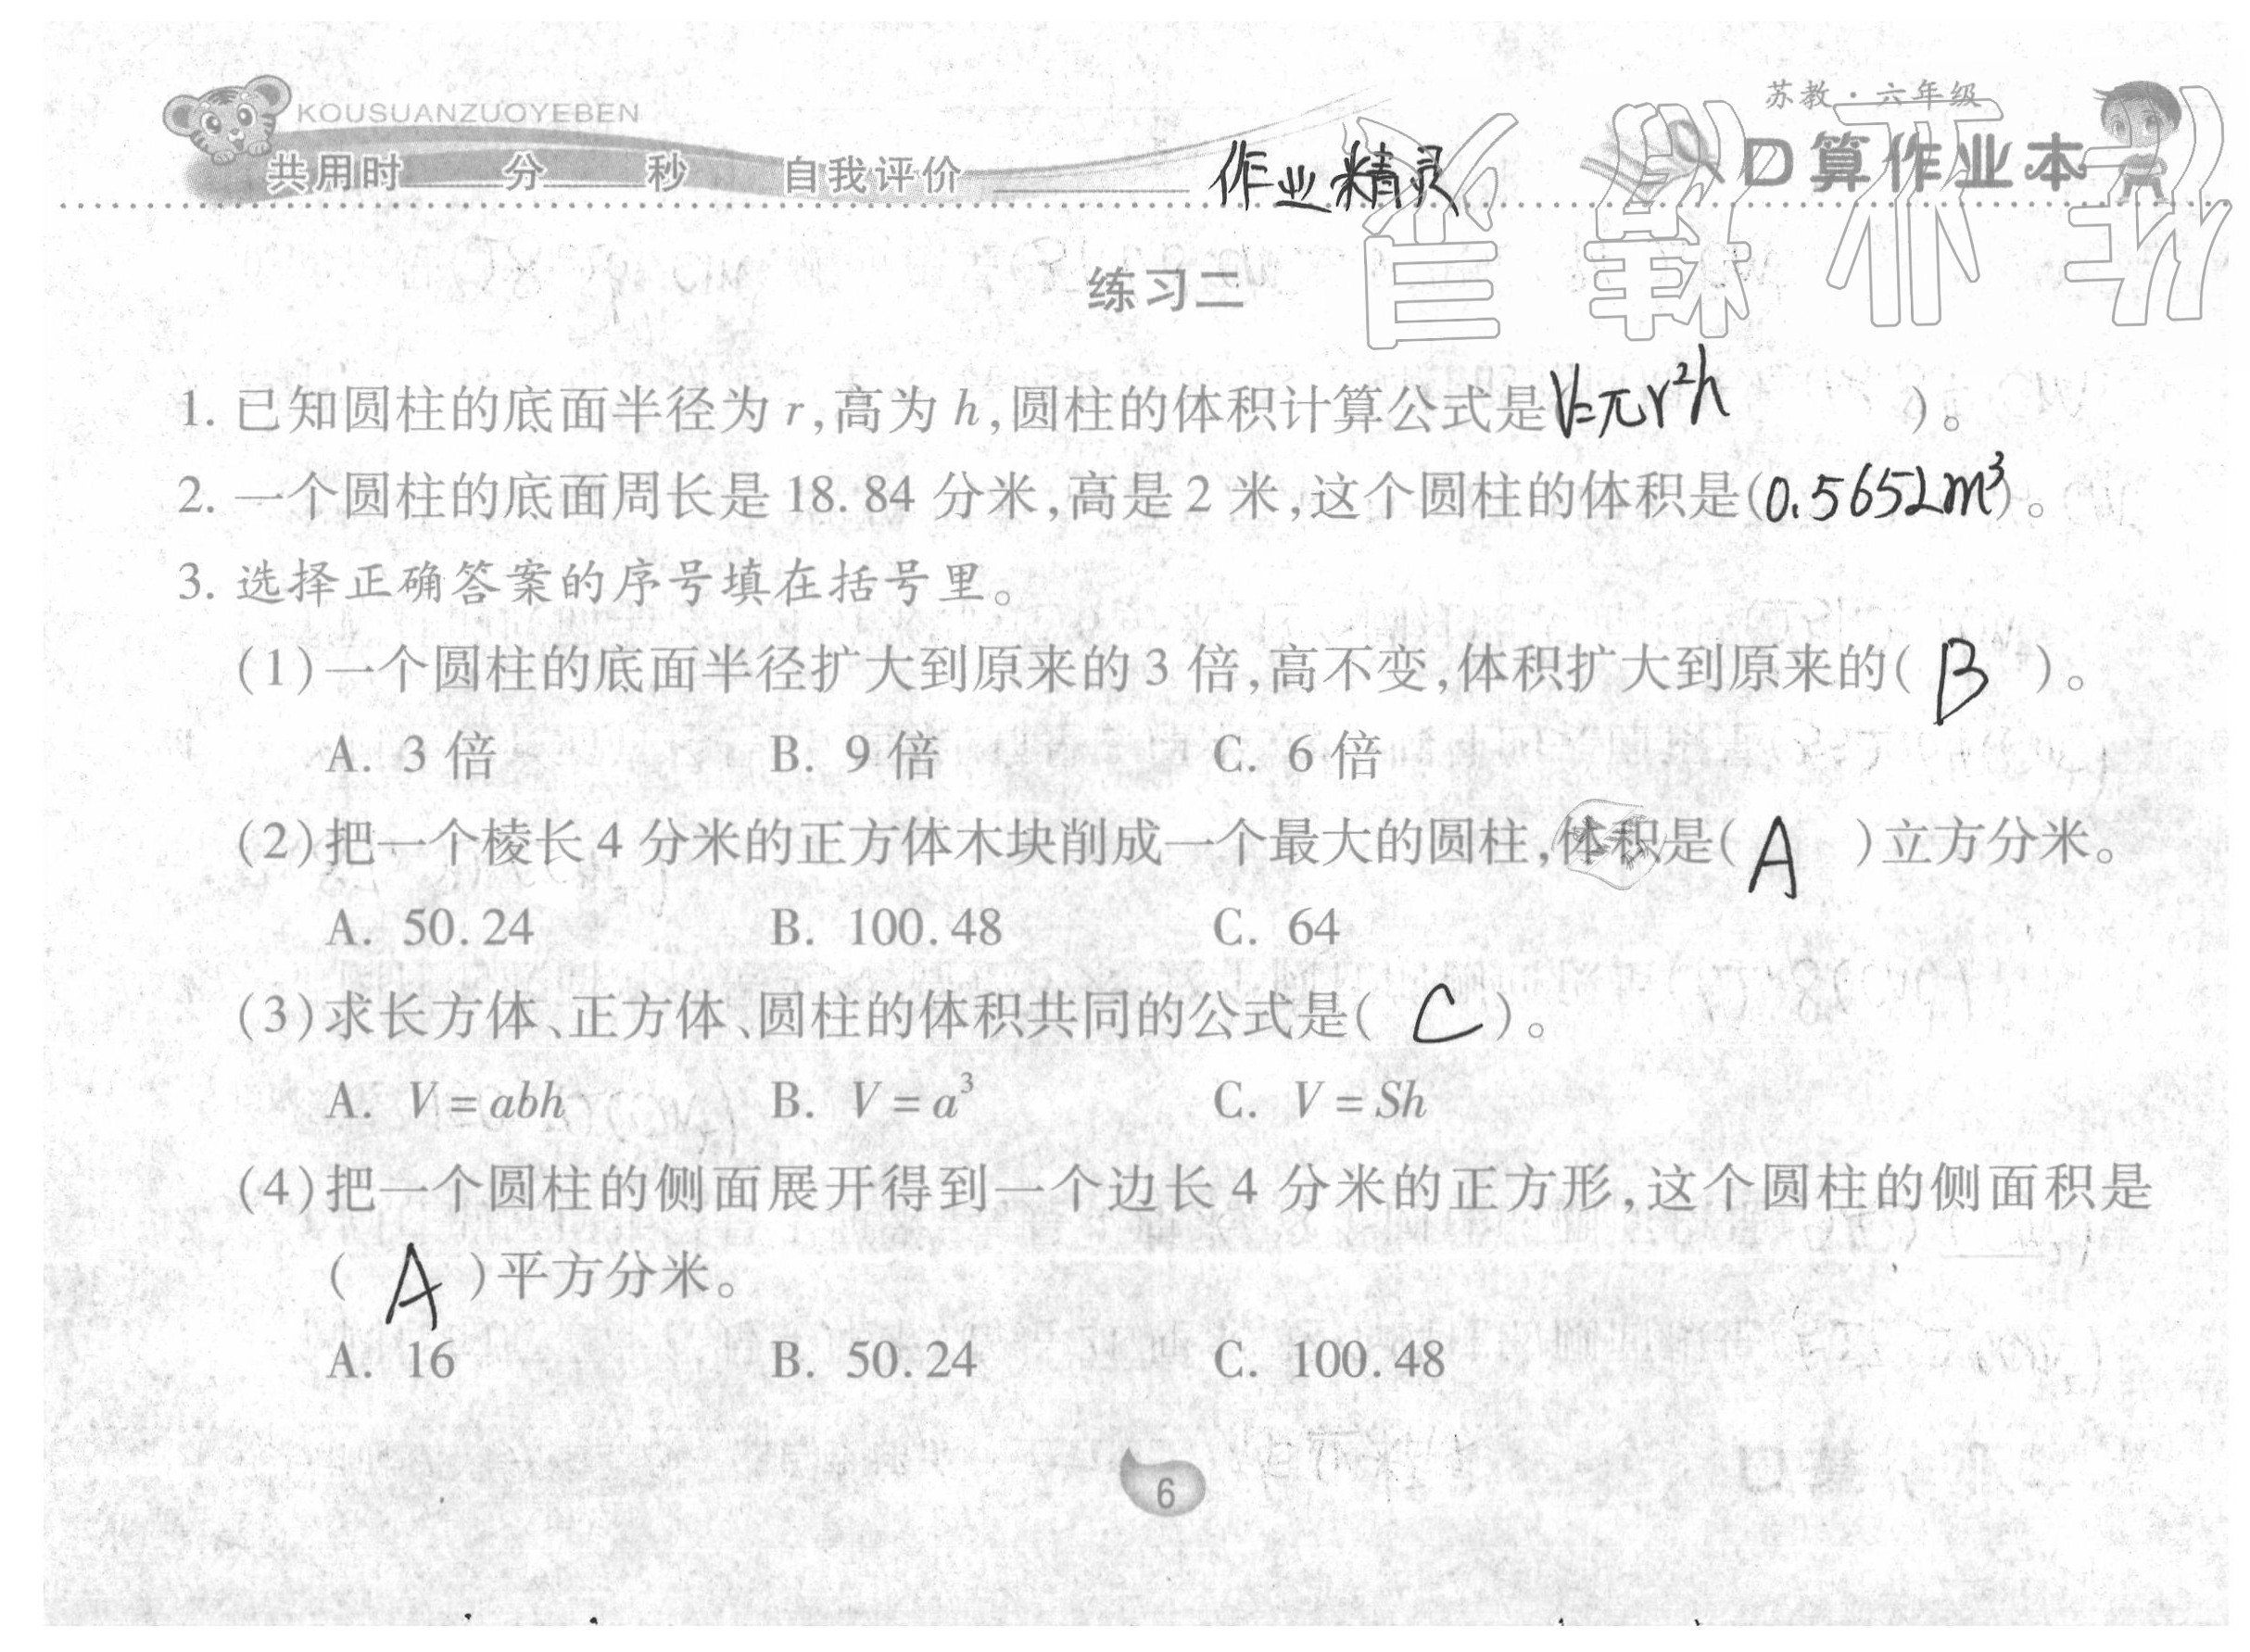 KOUSUANZUOYEBEN
苏教·六年级
共用时____分____秒 自我评价________ 作业精灵
口算作业本
练习二
1. 已知圆柱的底面半径为 r,高为 h,圆柱的体积计算公式是(V=πr²h)。
2. 一个圆柱的底面周长是 18.84 分米,高是 2 米,这个圆柱的体积是(0.5652m³)。
3. 选择正确答案的序号填在括号里。
(1)一个圆柱的底面半径扩大到原来的 3 倍,高不变,体积扩大到原来的( B )。
A. 3 倍 B. 9 倍 C. 6 倍
(2)把一个棱长 4 分米的正方体木块削成一个最大的圆柱,体积是( A )立方分米。
A. 50.24 B. 100.48 C. 64
(3)求长方体、正方体、圆柱的体积共同的公式是( C )。
A. V=abh B. V=a³ C. V=Sh
(4)把一个圆柱的侧面展开得到一个边长 4 分米的正方形,这个圆柱的侧面积是
( A )平方分米。
A. 16 B. 50.24 C. 100.48
6